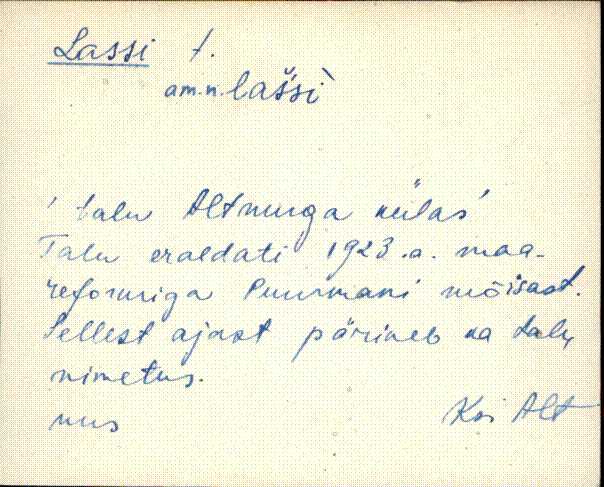 Lassi t.
am.n. laššì
' talu Altnurga külas '
Talu eraldati 1923.a. maa-
reformiga Puurmani mõisast.
Sellest ajast pärineb ka talu
nimetus.
Koi Alt